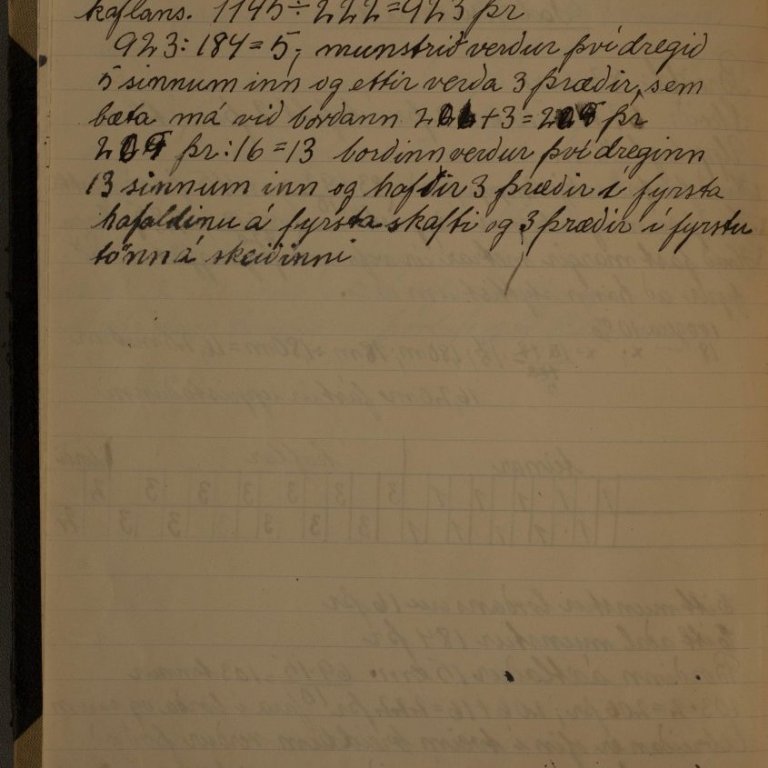 kaflans. 1145 ÷ 222 = 923 þr
923 : 184 = 5, munstrið verður því dregið
5 sinnum inn og eftir verða 3 þræðir, sem
bæta má við borðann + 3 = þr
þr : 16 = 13 borðinn verður því dreginn
13 sinnum inn og hafðir 3 þræðir í fyrsta
hafaldinu á fyrsta skafti og 3 þræðir í fyrstu
tönn á skeiðinni